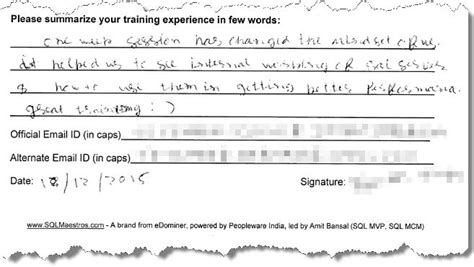 Please summarize your training experience in few words:
one week session has changed the mindset of me.
it helped us to see internal working of sql server
& how to use them in getting better performance.
great training :)
Official Email ID (in caps)
Alternate Email ID (in caps)
Date: 18/12/2015 Signature:
www.SQLMaestros.com - A brand from eDominer, powered by Peopleware India, led by Amit Bansal (SQL MVP, SQL MCM)